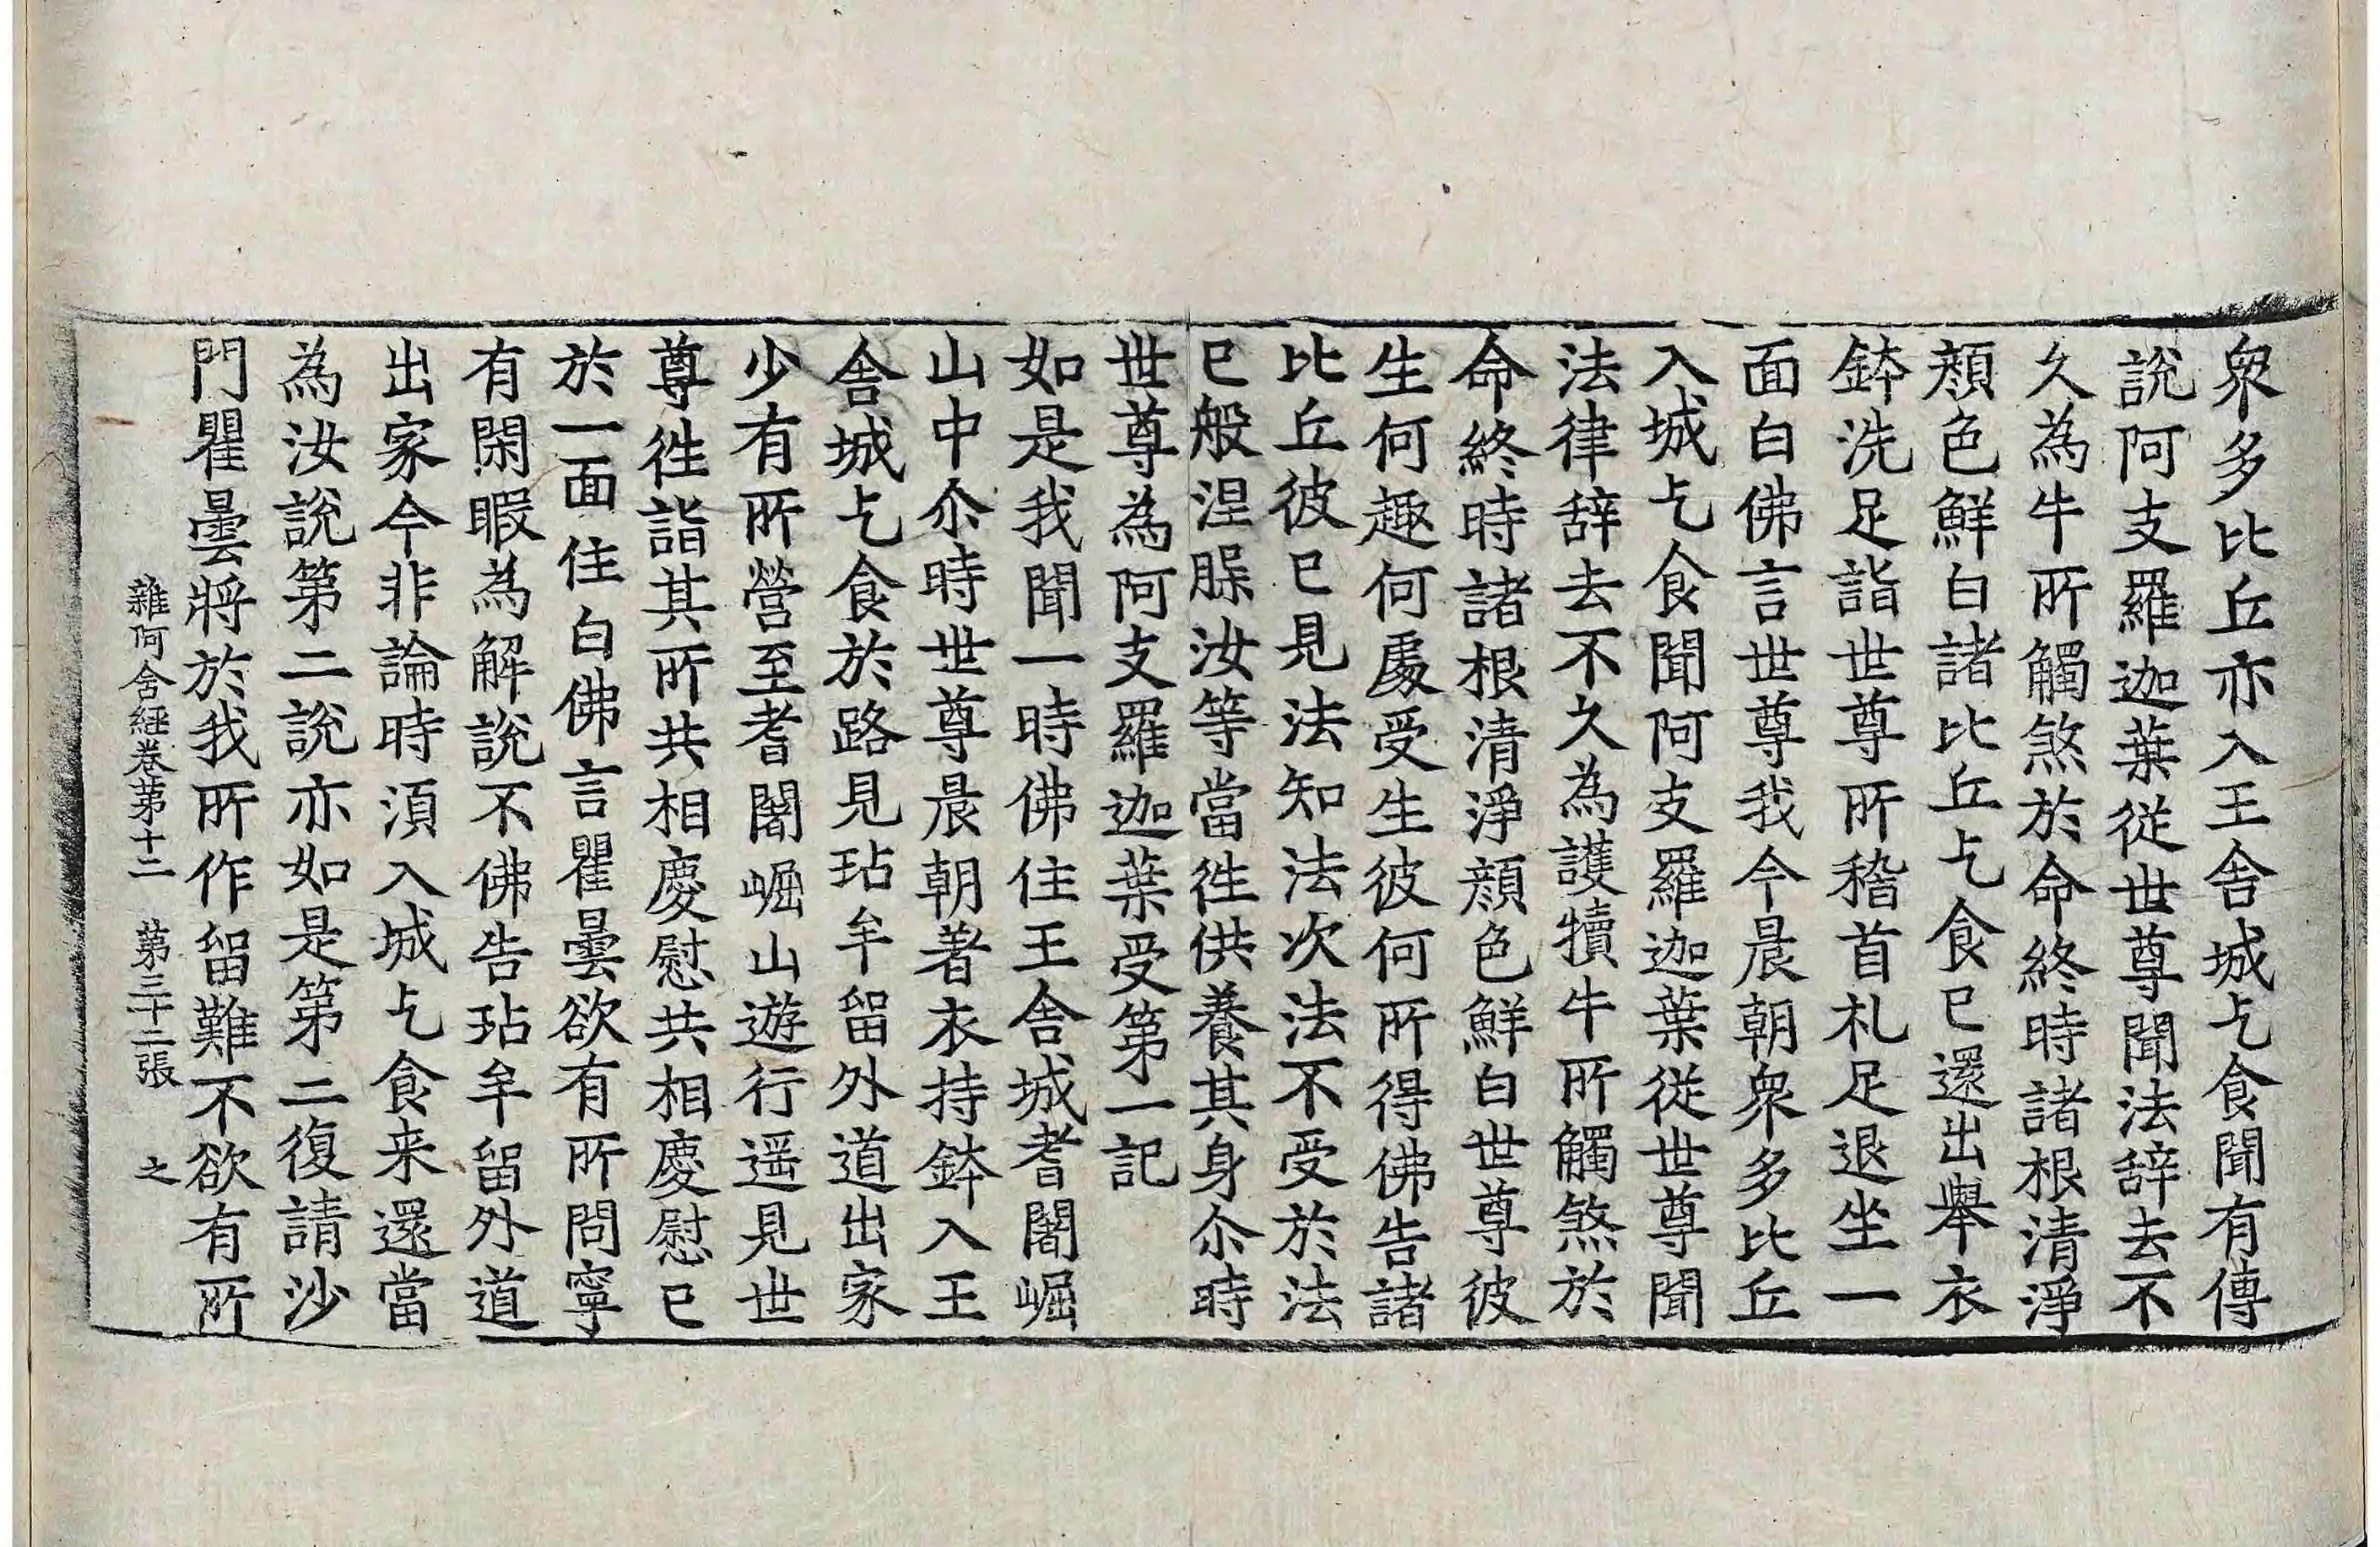 衆多比丘亦入王舍城乞食聞有傳
說阿支羅迦葉從世尊聞法辞去不
久為牛所觸煞於命終時諸根清淨
顔色鮮白諸比丘乞食已還出舉衣
鉢洗足詣世尊所稽首礼足退坐一
面白佛言世尊我今晨朝衆多比丘
入城乞食聞阿支羅迦葉從世尊聞
法律辞去不久為護犢牛所觸煞於
命終時諸根清淨顔色鮮白世尊彼
生何趣何處受生彼何所得佛告諸
比丘彼已見法知法次法不受於法
已般涅膍汝等當往供養其身尒時
世尊為阿支羅迦葉受第一記
如是我聞一時佛住王舍城耆闍崛
山中尒時世尊晨朝著衣持鉢入王
舍城乞食於路見玷牟留外道出家
少有所營至耆闍崛山遊行遥見世
尊徃詣其所共相慶慰共相慶慰已
於一面住白佛言瞿曇欲有所問寧
有閑暇為解說不佛告玷牟留外道
出家今非論時湏入城乞食来還當
為汝說第二說亦如是第三復請沙
門瞿曇將於我所作留難不欲有所
雜阿含經卷第十二 第三十二張 之